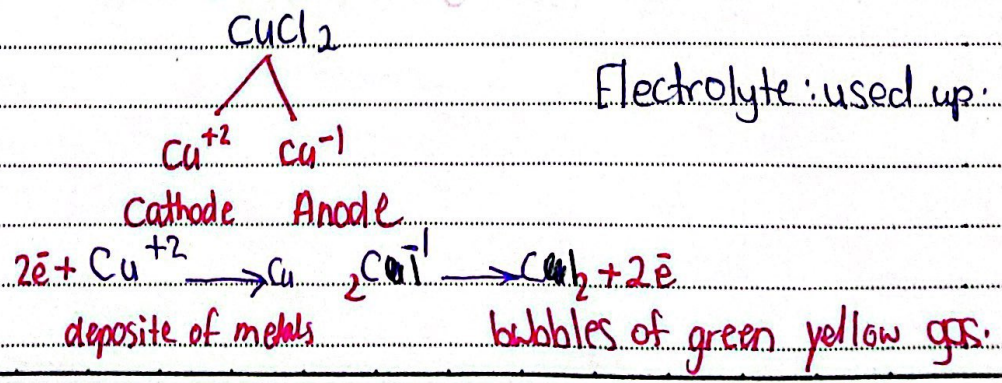 CuCl2
Electrolyte: used up.
Cu+2 Cu-1
Cathode Anode
2ē + Cu+2 → Cu 2Cl-1 → Cl2 + 2ē
deposite of metals bubbles of green yellow gas.